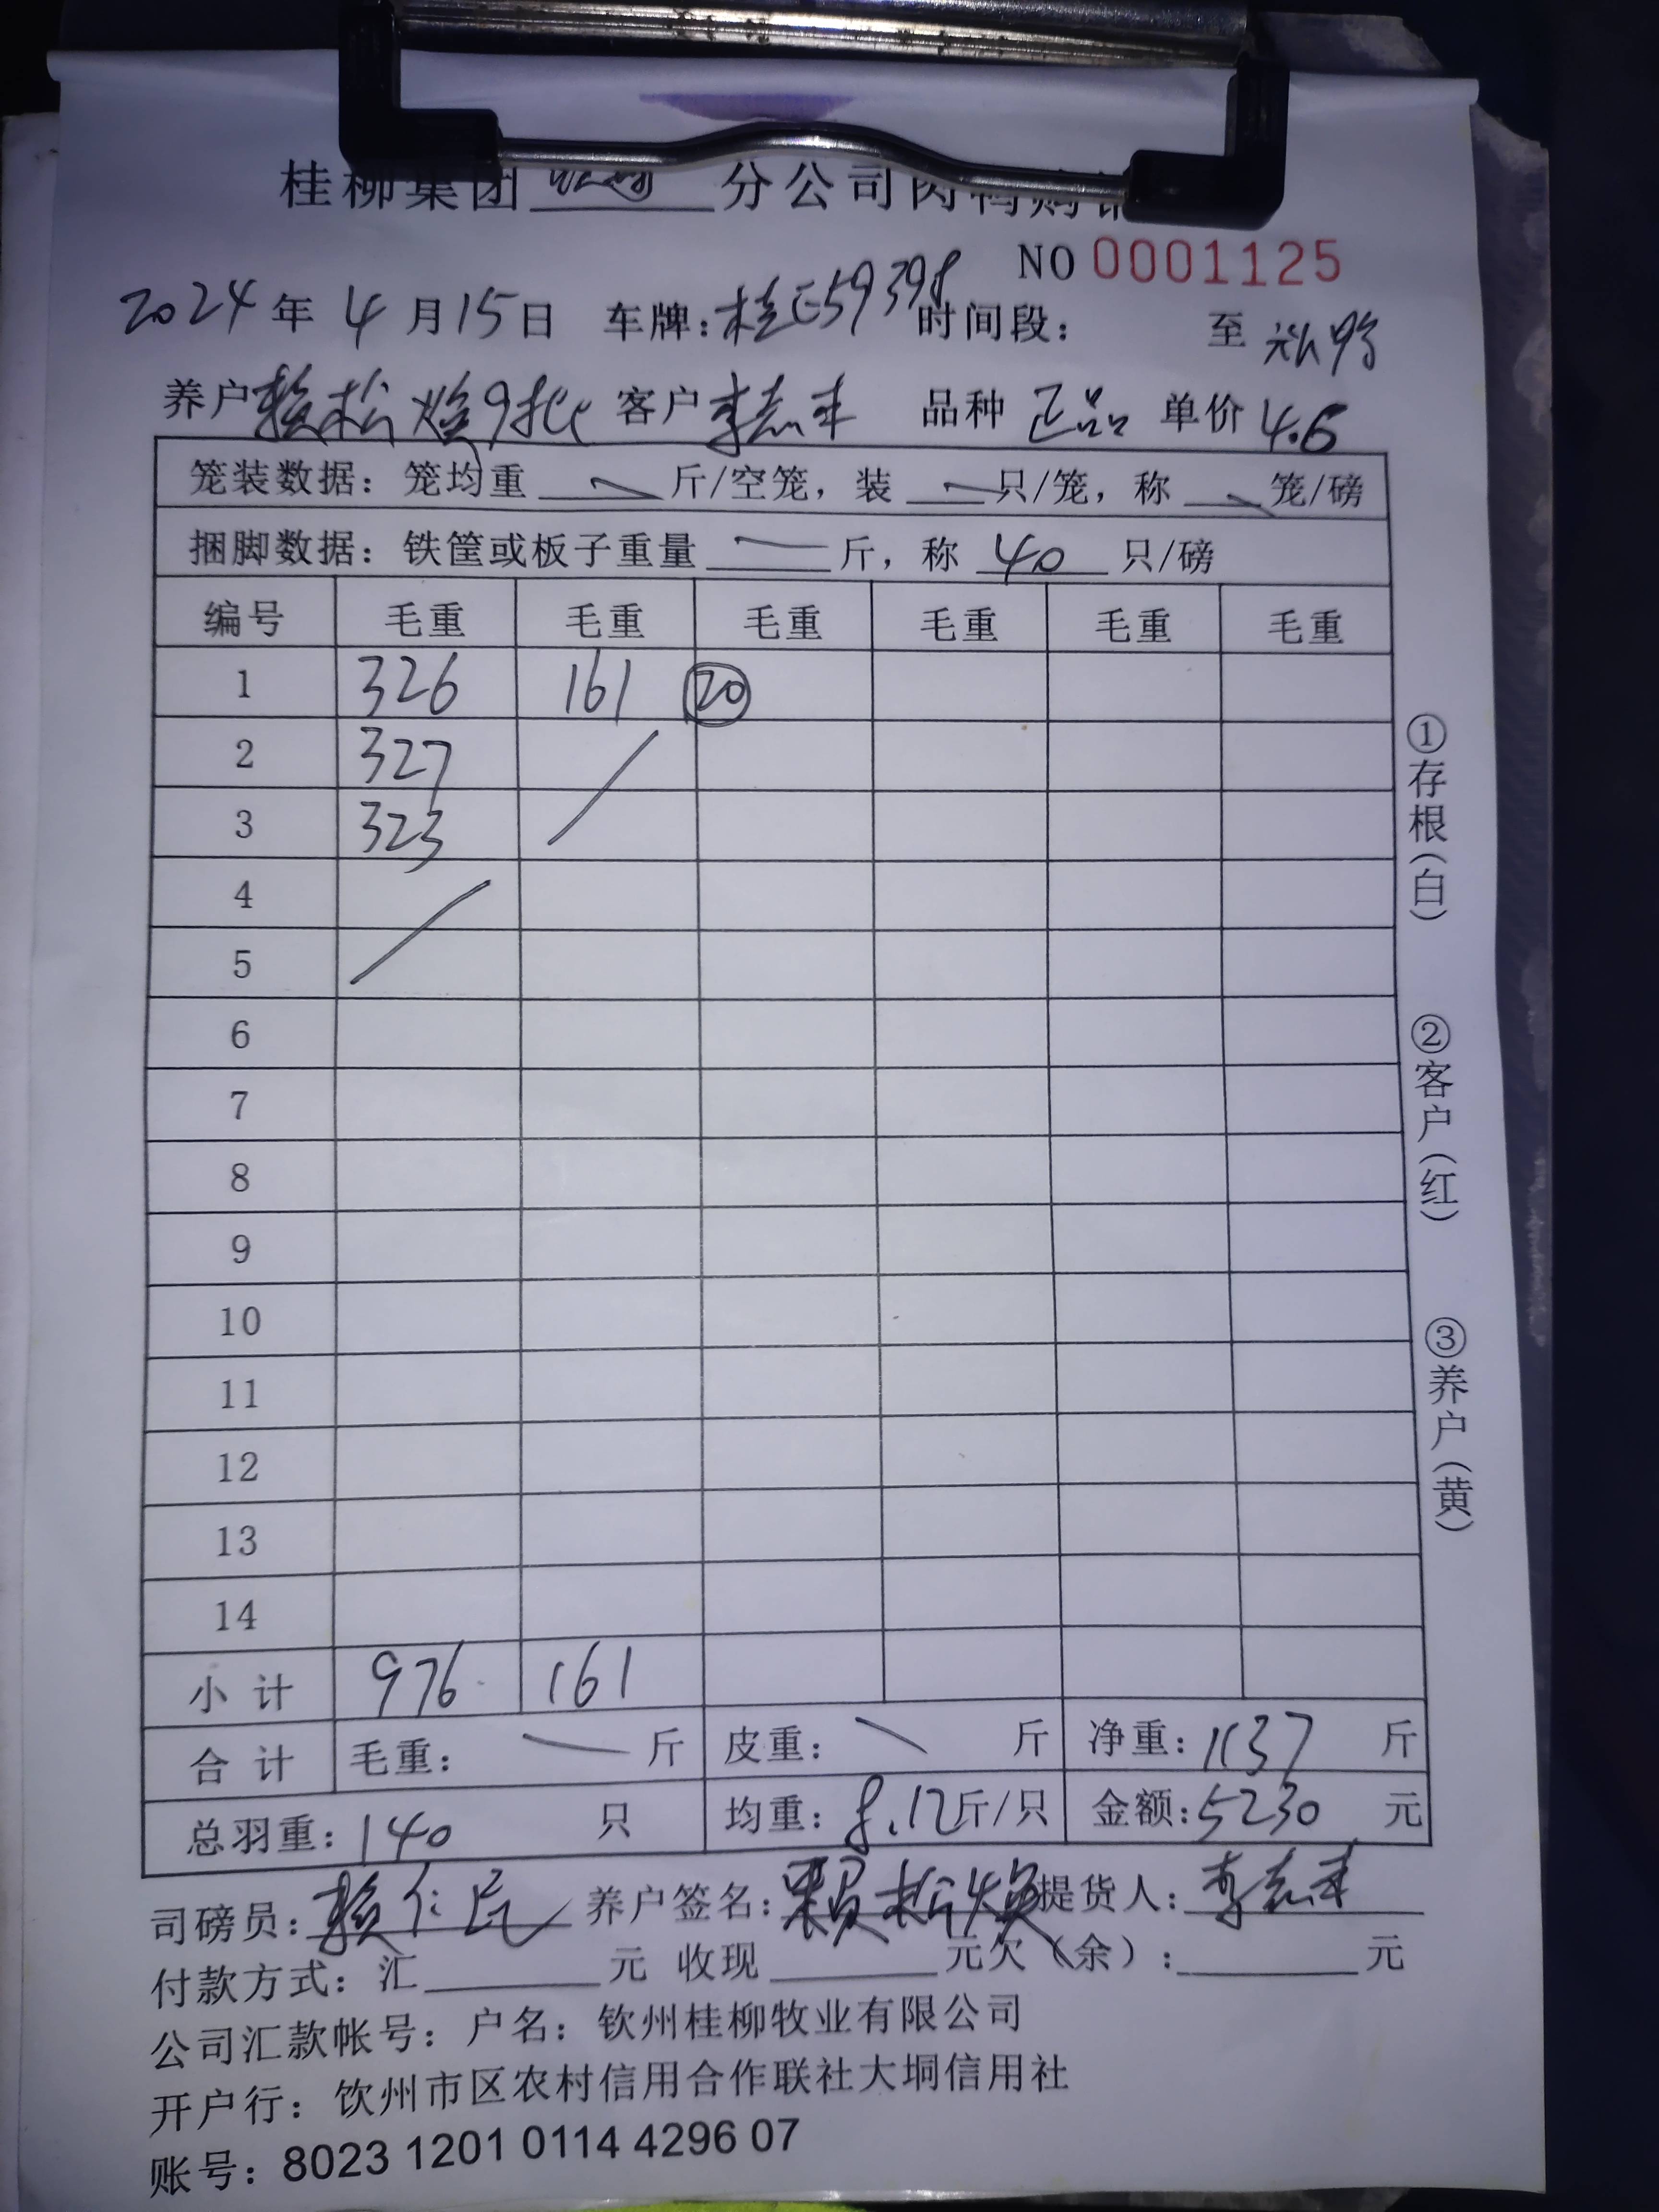 桂柳集团 分公司肉鸭购销
NO 0001125
2024年4月15日 车牌:桂E59398 时间段: 至
养户 赖松焕9批 客户 李志丰 品种 正品 单价 4.6
笼装数据:笼均重 斤/空笼,装 只/笼,称 笼/磅
捆脚数据:铁筐或板子重量 斤,称 40 只/磅
编号 毛重 毛重 毛重 毛重 毛重 毛重
1 326 161 ⑳
2 327
3 323
4
5
6
7
8
9
10
11
12
13
14
小计 976 161
合计 毛重: 斤 皮重: 斤 净重:1137 斤
总羽重:140 只 均重:8.12斤/只 金额:5230 元
司磅员:赖仁民 养户签名:赖松焕 提货人:李志丰
付款方式:汇 元 收现 元欠(余): 元
公司汇款帐号:户名:钦州桂柳牧业有限公司
开户行:钦州市区农村信用合作联社大垌信用社
账号:8023 1201 0114 4296 07
①存根(白)
②客户(红)
③养户(黄)